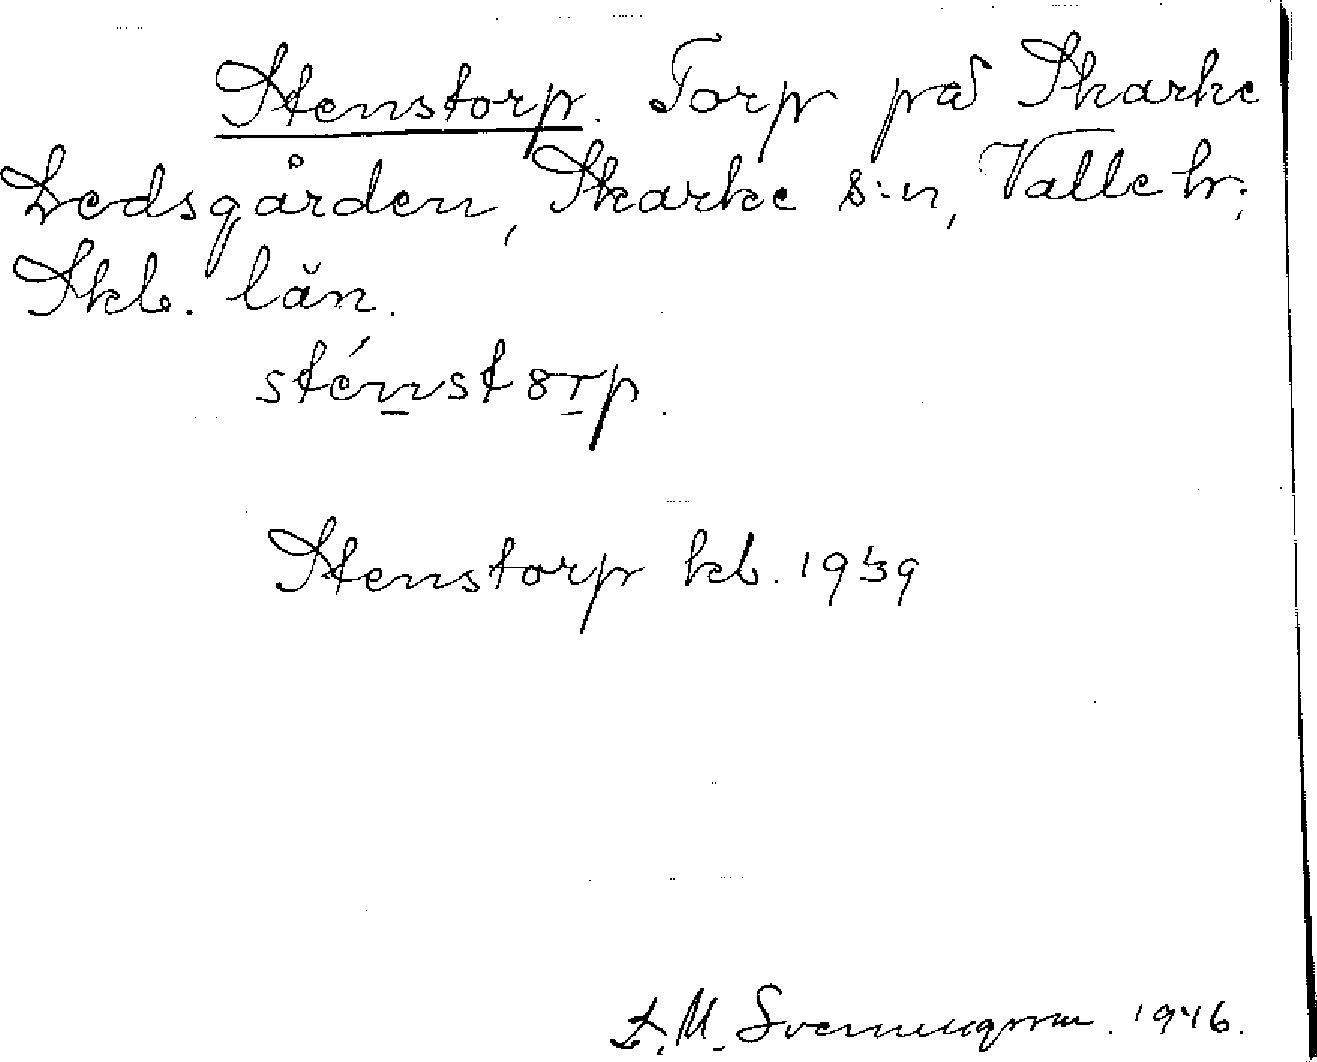 Stenstorp. Torp på Skarke
Ledsgården, Skarke s:n, Valle hd;
Skb. län.
sténstørp.
Stenstorp kb. 1939
L.M. Svenungsson. 1946.